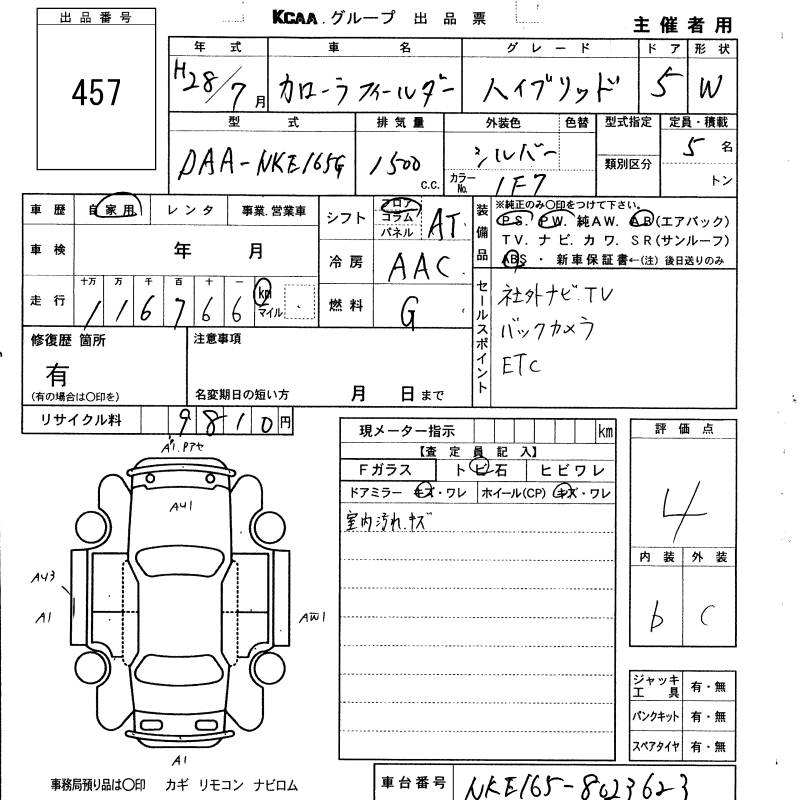 KCAA.グループ 出品票
主催者用
出品番号
457
年式 車名 グレード ドア 形状
H28/7月 カローラフィールダー ハイブリッド 5 W
型式 排気量 外装色 色替 型式指定 定員・積載
DAA-NKE165G 1500 c.c. シルバー 5名
カラーNo. 1F7 類別区分 トン
車歴 自家用 レンタ 事業.営業車
車検 年 月
走行 十万 万 千 百 十 一
116766 km
マイル
シフト フロア コラム パネル AT
冷房 AAC
燃料 G
装備品 ※純正のみ〇印をつけて下さい。
PS. PW. 純AW. AB(エアバック)
TV. ナビ. カワ. SR(サンルーフ)
ABS ・ 新車保証書←(注) 後日送りのみ
セールスポイント
社外ナビ.TV
バックカメラ
ETC
修復歴 箇所
有
(有の場合は〇印を)
注意事項
名変期日の短い方 月 日まで
リサイクル料 9810円
現メーター指示 km
【査定員記入】
Fガラス トビ石 ヒビワレ
ドアミラー キズ・ワレ ホイール(CP) キズ・ワレ
室内汚れ.キズ
評価点
4
内装 外装
b C
AU1
AU3
A1
AW1
A1
ジャッキ工具 有・無
パンクキット 有・無
スペアタイヤ 有・無
事務局預り品は〇印 カギ リモコン ナビロム
車台番号 NKE165-8023623